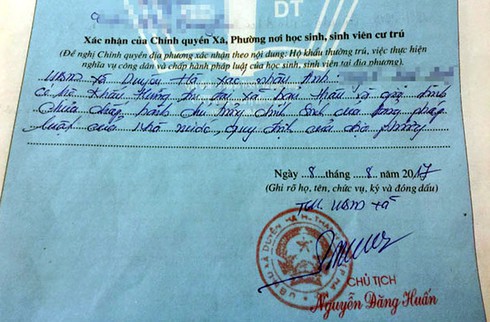 ĐT
Xác nhận của Chính quyền Xã, Phường nơi học sinh, sinh viên cư trú
(Đề nghị Chính quyền địa phương xác nhận theo nội dung: Hộ khẩu thường trú, việc thực hiện
nghĩa vụ công dân và chấp hành pháp luật của học sinh, sinh viên tại địa phương).
UBND xã Duyên Hà xác nhận Anh
có hộ khẩu thường trú tại xã bản thân và gia đình
chưa chấp hành chủ trương chính sách của pháp
luật của nhà nước, quy định của địa phương
Ngày 8 tháng 8 năm 2017
(Ghi rõ họ, tên, chức vụ, ký và đóng dấu)
TM. UBND xã
CHỦ TỊCH
Nguyễn Đăng Huấn